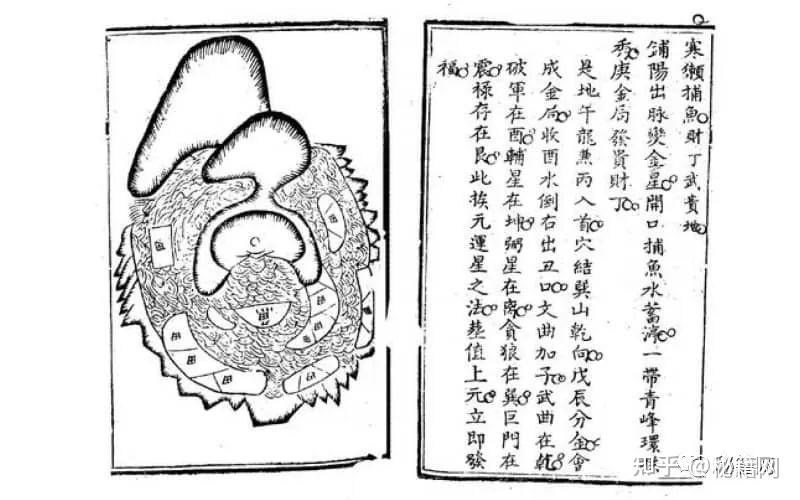 寒獺捕魚財丁武貴地
鋪陽出脉變金星開口捕魚水蓄濟一帶青峰環
秀庚金局發貴財丁
是地午龍兼丙入首穴結巽山乾向戊辰分金會
成金局收酉水倒右出丑口文曲加子武曲在乾
破軍在酉輔星在坤弼星在離貪狼在巽巨門在
震祿存在艮此挨元運星之法葬值上元立即發
福
田
田
田
田
田
田
田
田
田
知乎 @秘籍网